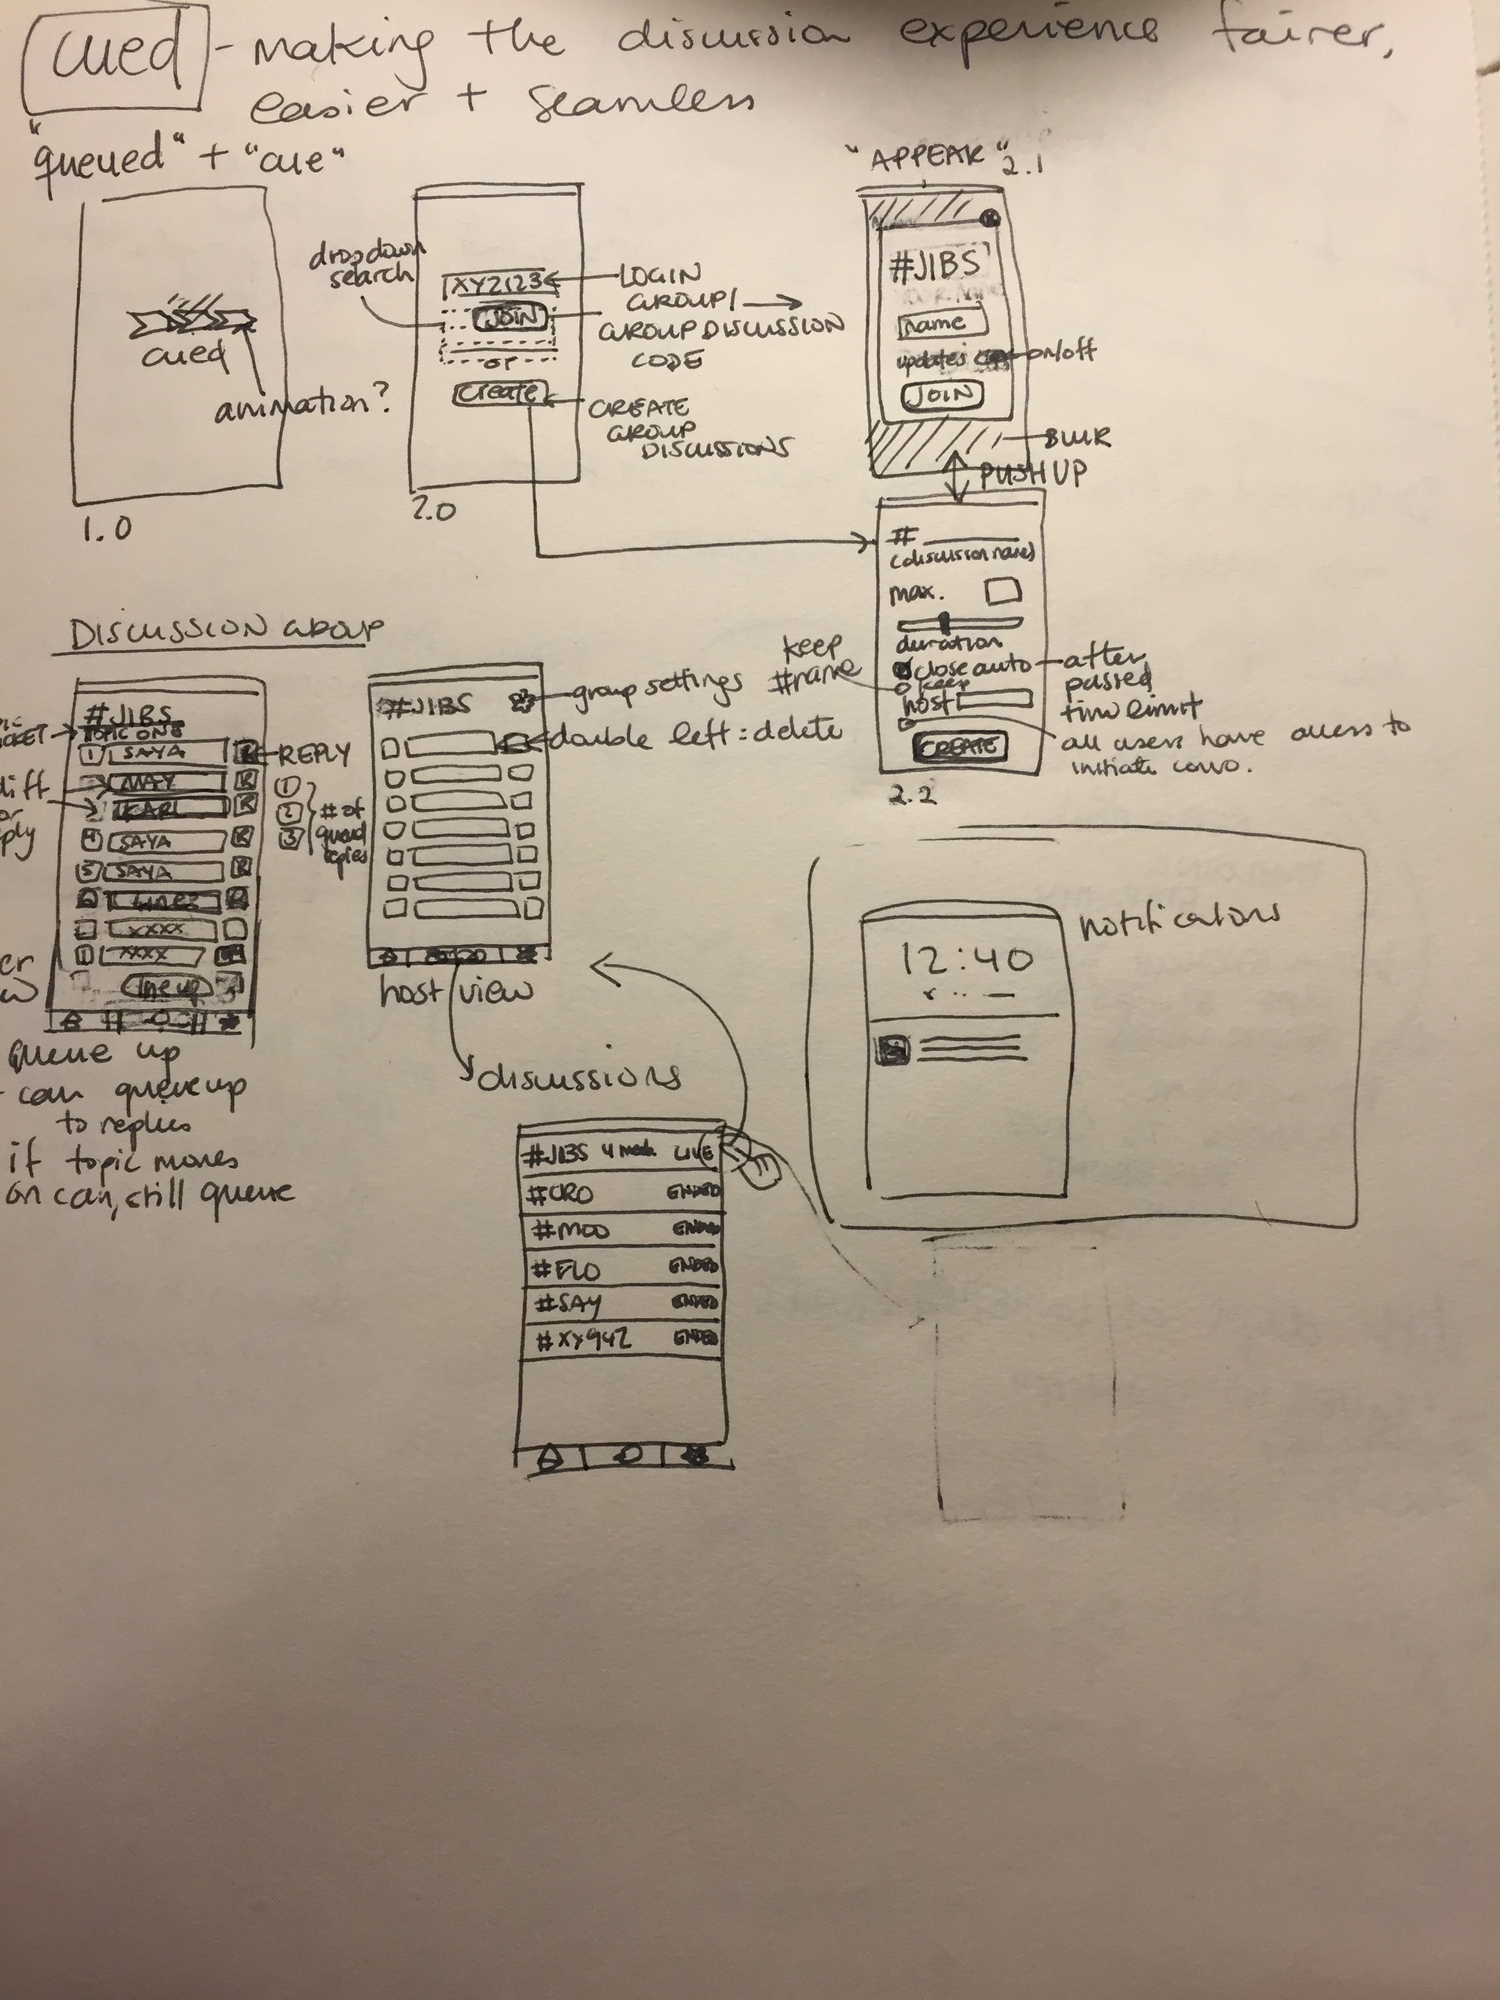 cued - making the discussion experience fairer,
easier + seamless
"queued" + "cue"
cued
animation?
1.0
dropdown
search
XYZ123
JOIN
or
create
LOGIN
GROUP/
GROUP DISCUSSION
CODE
CREATE
GROUP
DISCUSSIONS
2.0
"APPEAR"
2.1
#JIBS
name
updates
on/off
JOIN
BLUR
PUSH UP
#
(discussion name)
max.
duration
close auto
after
passed
time limit
keep
keep
#name
host
all users have access to
initiate convo.
CREATE
2.2
DISCUSSION GROUP
#JIBS
TOPIC ONE
1 SAYA
REPLY
MAY
KARL
4 SAYA
R
5 SAYA
xxxx
xxxx
line up
diff
1
2
3
# of
queued
replies
queue up
- can queue up
to replies
if topic moves
on can, still queue
#JIBS
group settings
double left: delete
host view
discussions
#JIBS LIVE
#CRO ENDED
#MOO ENDED
#FLO ENDED
#SAY ENDED
#XY94Z ENDED
notifications
12:40